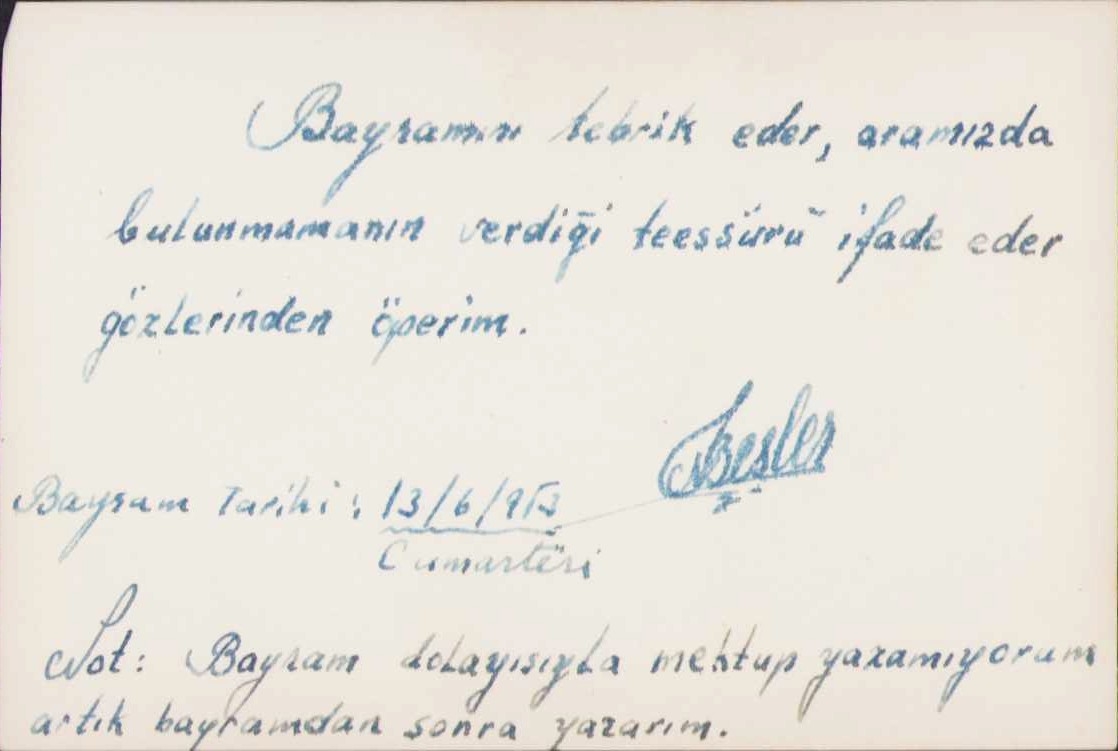 Bayramını tebrik eder, aramızda
bulunmamanın verdiği teessürü ifade eder
gözlerinden öperim.
Besler
Bayram Tarihi: 13/6/953
Cumartesi
Not: Bayram dolayısıyla mektup yazamıyorum
artık bayramdan sonra yazarım.